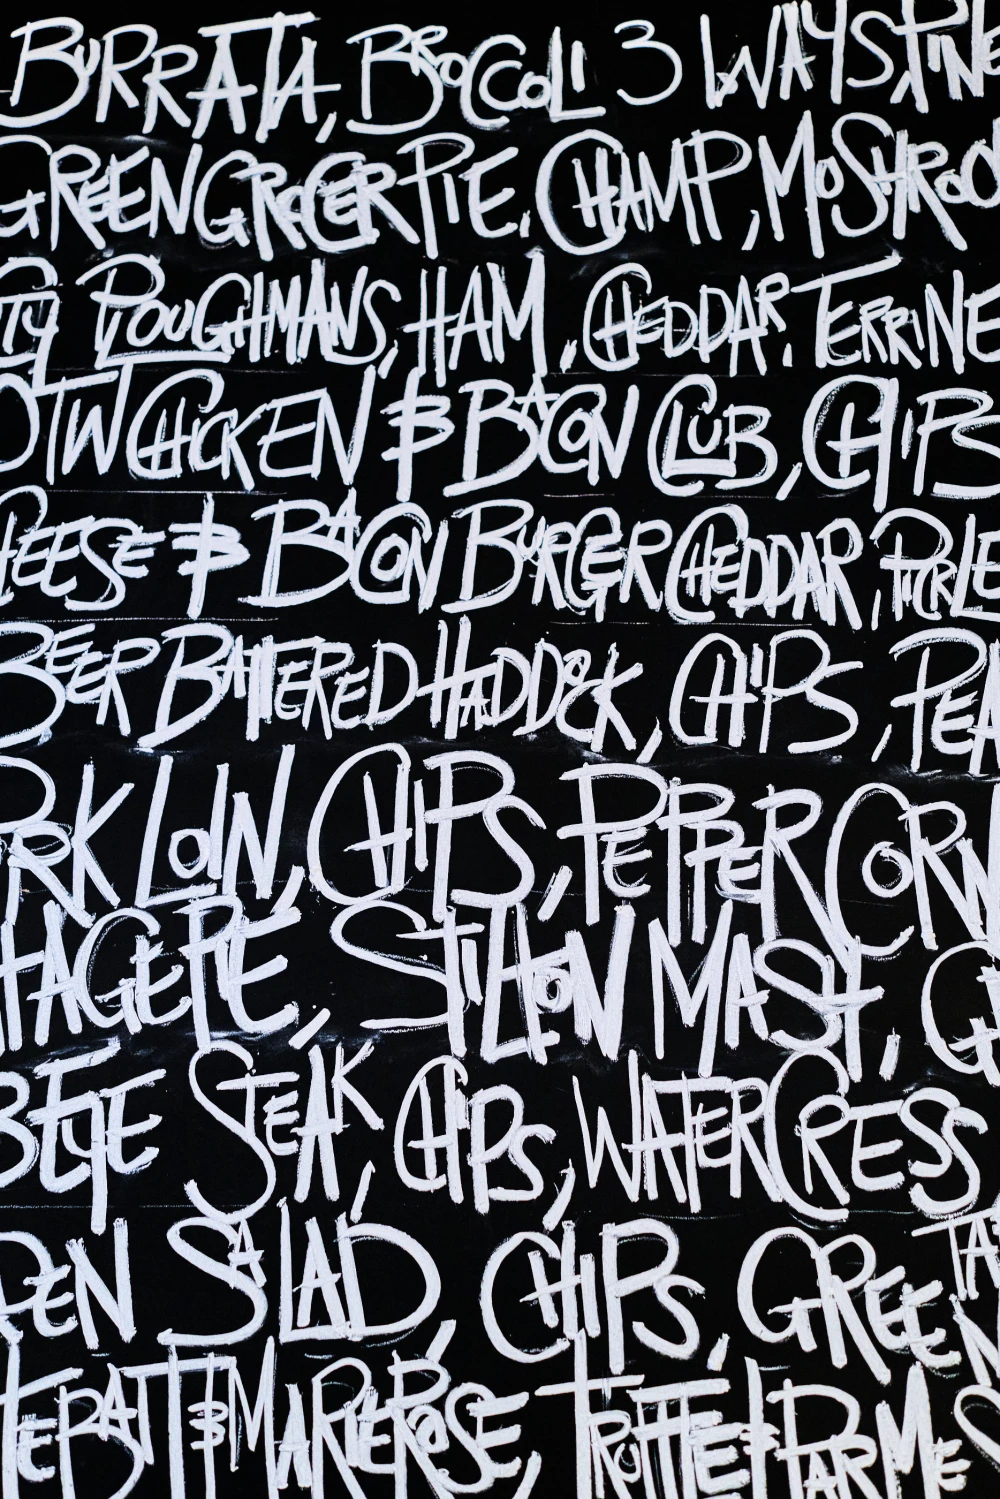 BURRATA, BROCCOLI 3 WAYS, PINE
GREENGROCER PIE, CHAMP, MUSHROO
TY PLOUGHMANS, HAM, CHEDDAR, TERRINE
OTW CHICKEN & BACON CLUB, CHIPS
EESE & BACON BURGER CHEDDAR, PICKLE
BEER BATTERED HADDOCK, CHIPS, PEA
ORK LOIN, CHIPS, PEPPERCORN
TTAGE PIE, STILTON MASH, G
BEYE STEAK, CHIPS, WATERCRESS
DEN SALAD, CHIPS, GREEN TA
& MARIE ROSE, TRUFFLE & PARMES